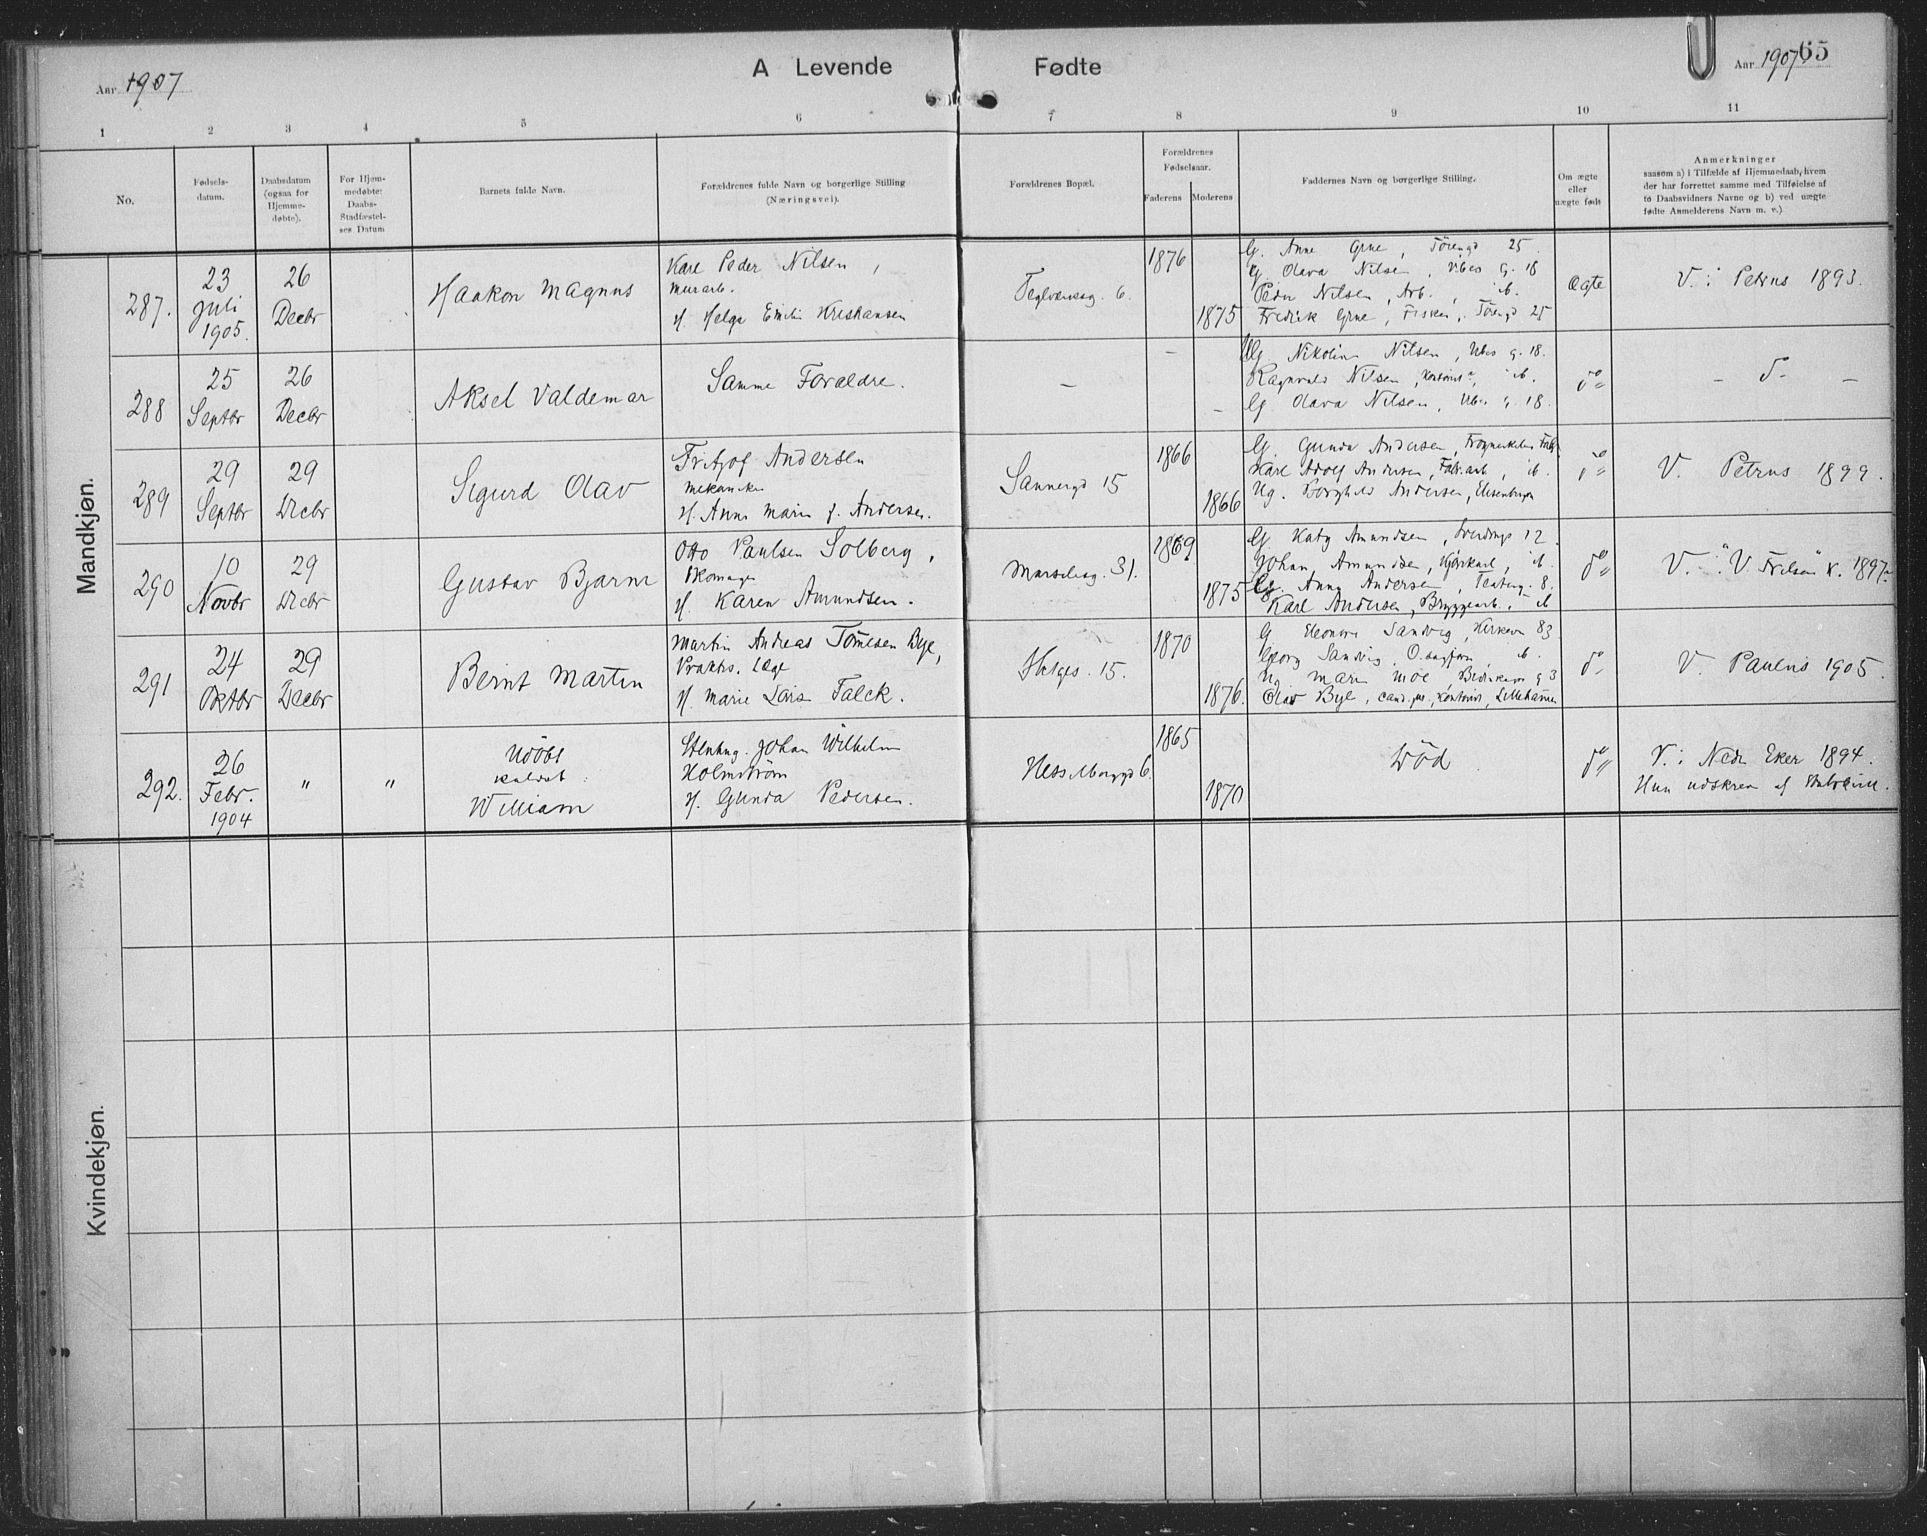 Aar 1907
A Levende
Fødte
Aar 1907
65
1
2
3
4
5
6
7
8
9
10
11
No.
Fødsels-
datum.
Daabsdatum
(ogsaa for
Hjemme-
døbte).
For Hjem-
medøbte:
Daabs-
Stadfæstel-
ses Datum
Barnets fulde Navn.
Forældrenes fulde Navn og borgerlige Stilling
(Næringsvei).
Forældrenes Bopæl.
Forældrenes
Fødselsaar.
Faderens
Moderens
Faddernes Navn og borgerlige Stilling.
Om ægte
eller
uægte født
Anmerkninger
saasom a) i Tilfælde af Hjemmedaab, hvem
der har forrettet samme med Tilføielse af
to Daabsvidners Navne og b) ved uægte
fødte Anmelderens Navn m. v.)
Mandkjøn.
287.
23
Juli
1905.
26
Decbr
Haakon Magnus
Karl Peder Nilsen,
Murarb.
H. Helga Emilie Kristiansen
Teglverksg. 6.
1876
1875
G. Anne Grue, Tøiengd 25.
G. Olava Nilsen, Vibes g. 18
Peder Nilsen, Arb., ib.
Fredrik Grue, Fisker, Tøiengd 25
Ægte
V. : Petrus 1893.
288
25
Septbr
26
Decbr
Aksel Valdemar
Samme Forældre.
–
–
–
G. Nikoline Nilsen, Vibes g. 18.
Ragnvald Nilsen, Kontorist, ib.
G. Olava Nilsen, Vibes g. 18.
do
– do –
289
29
Septbr
29
Decbr
Sigurd Olav
Fritjof Andersen
Mekaniker
H. Anna Marie f. Andersen.
Sannergd 15
1866
1866
G. Gunda Andersen,
Karl Adolf Andersen, Fabr.arb, ib.
Ug. Borghild Andersen,
do
V. Petrus 1899.
290
10
Novbr
29
Decbr
Gustav Bjarne
Otto Paulsen Solberg,
Skomager
H. Karen Amundsen.
Marselisg. 31.
1869
1875
G. Katy Amundsen, Sverdrups 12
Johan Amundsen, Kjørekarl, ib.
G. Anna Andersen, Teaterg. 8.
Karl Andersen, Bryggearb., ib
do
V. : V. Frelsers K. 1897.
291
24
Oktbr
29
Decbr
Bernt Martin
Martin Andreas Tømesen Bye,
Praktis. Læge
H. Marie Lovise Falck.
15.
1870
1876.
G. Eleonore Sandvig, Kirkevn 83
Georg Sandvig, ib.
Ug Marie Moe, g 3
Olav Bye, cand. ph., Kontorist, Lillehammer
do
V. Paulus 1905.
292.
26
Febr.
1904
"
"
Udøbt
kaldet:
William
Stenhug. Johan Wilhelm
Holmström
H. Gunda Pedersen.
Hesselberggd 6.
1865
1870
Død.
do
V. : Nedr Eker 1894.
Hun udskreven af Statskirken.
Kvindekjøn.